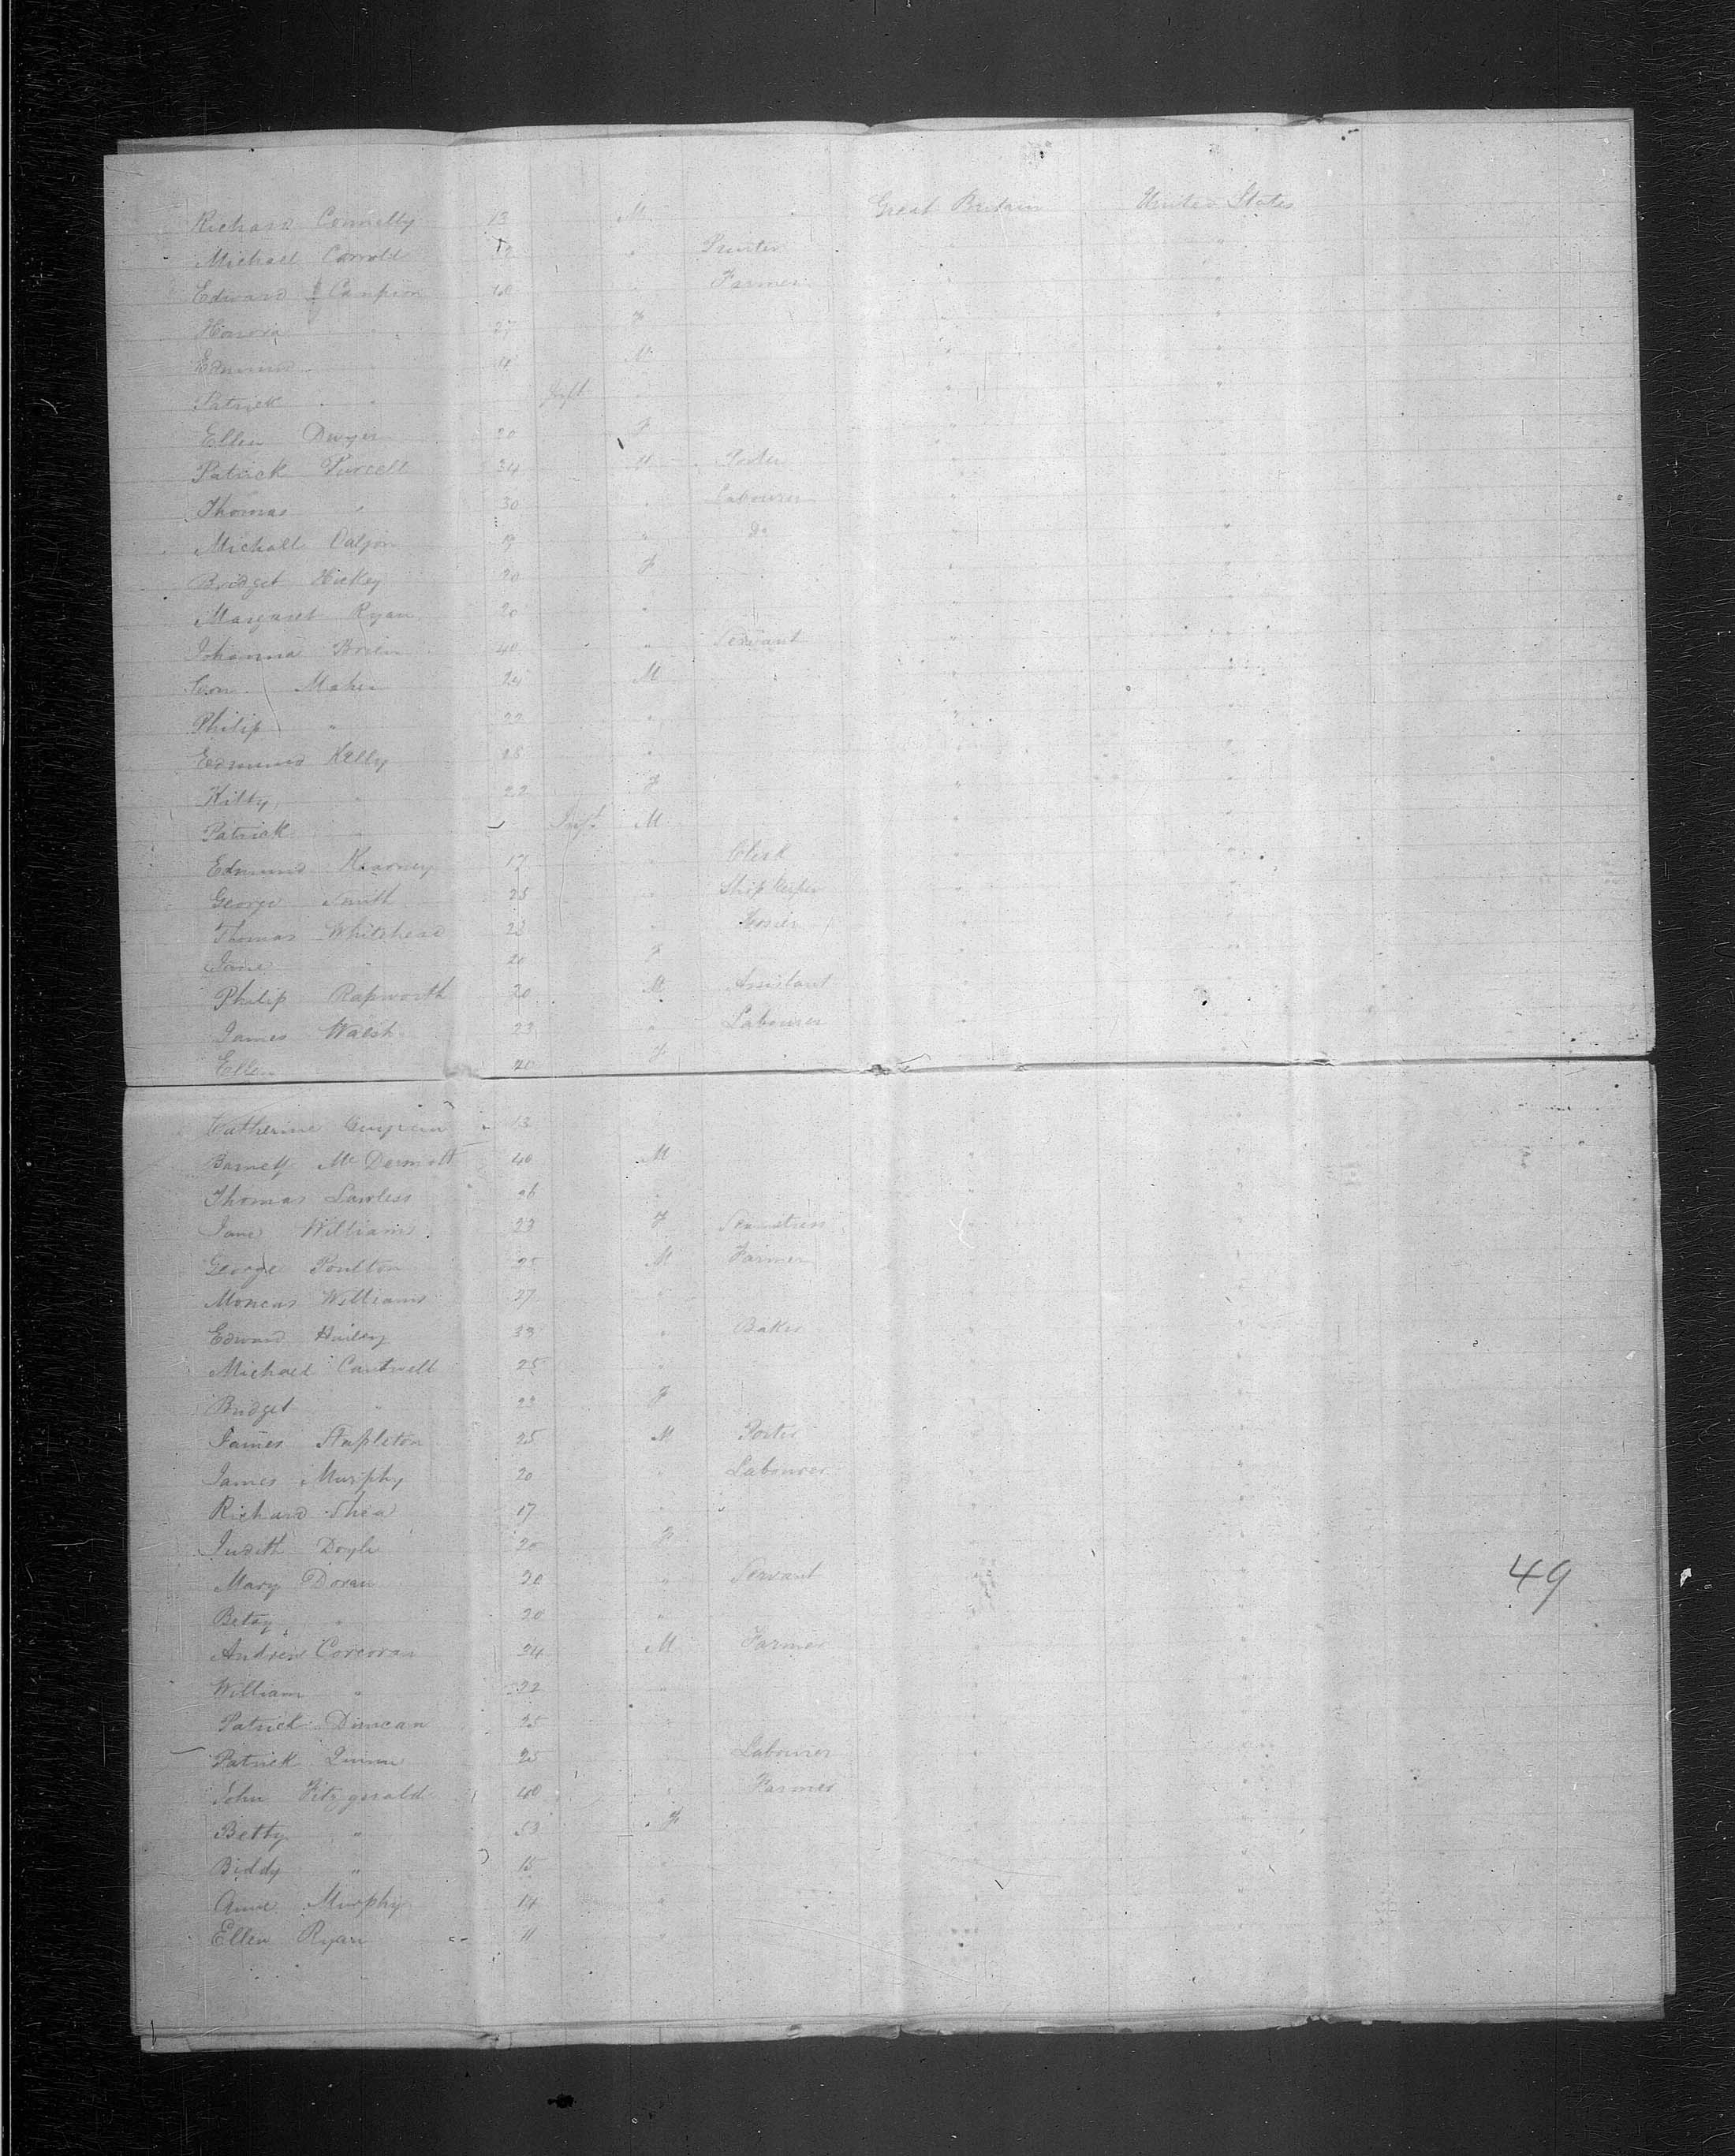 Richard Connelly 13 M Great Britain United States
Michael Carroll 12 " Printer " "
Edward Campion " Farmer " "
Honora " 27 F " "
Edmund " 4 M " "
Patrick " " Inft " " "
Ellen Dwyer 20 F " "
Patrick Purcell 34 M Porter " "
Thomas " 30 " Labourer " "
Michael 19 " Do " "
Bridget Hickey 20 F " "
Margaret Ryan 20 " " "
Johanna Brien 40 " Servant " "
Maher 24 M " "
Philip " 22 " " "
Edmund Kelly 28 " " "
Kitty " 22 F " "
Patrick " Inft M " "
Edmund Kearney 17 " Clerk " "
George Smith 25 " Shop Keeper " "
Thomas Whitehead 23 " " "
Jane " 20 F " "
Philip Rapworth 20 M Assistant " "
James Walsh 23 " Labourer " "
Ellen 20 F
Catherine 13 "
Barnett McDermott 40 M " "
Thomas Lawless 26 " " "
Jane Williams 23 F " "
George Poulton 25 M Farmer " "
Williams 27 " " "
Edward 33 " Baker " "
Michael Cantwell 25 " " "
Bridget " 23 F " "
James Stapleton 25 M Porter " "
James Murphy 20 " Labourer " "
Richard Shea 17 " " " "
Judith Doyle 20 F " "
Mary Doran 20 " Servant " "
49
Betsy " 20 " " "
Andrew Corcoran 24 M Farmer " "
William " 22 " " "
Patrick Duncan 25 " "
Patrick Quinn 25 Labourer " "
John Fitzgerald 40 " Farmer " "
Betty " 53 F " "
Biddy " 15 " " "
Anne Murphy 14 " " "
Ellen Ryan 11 " " "